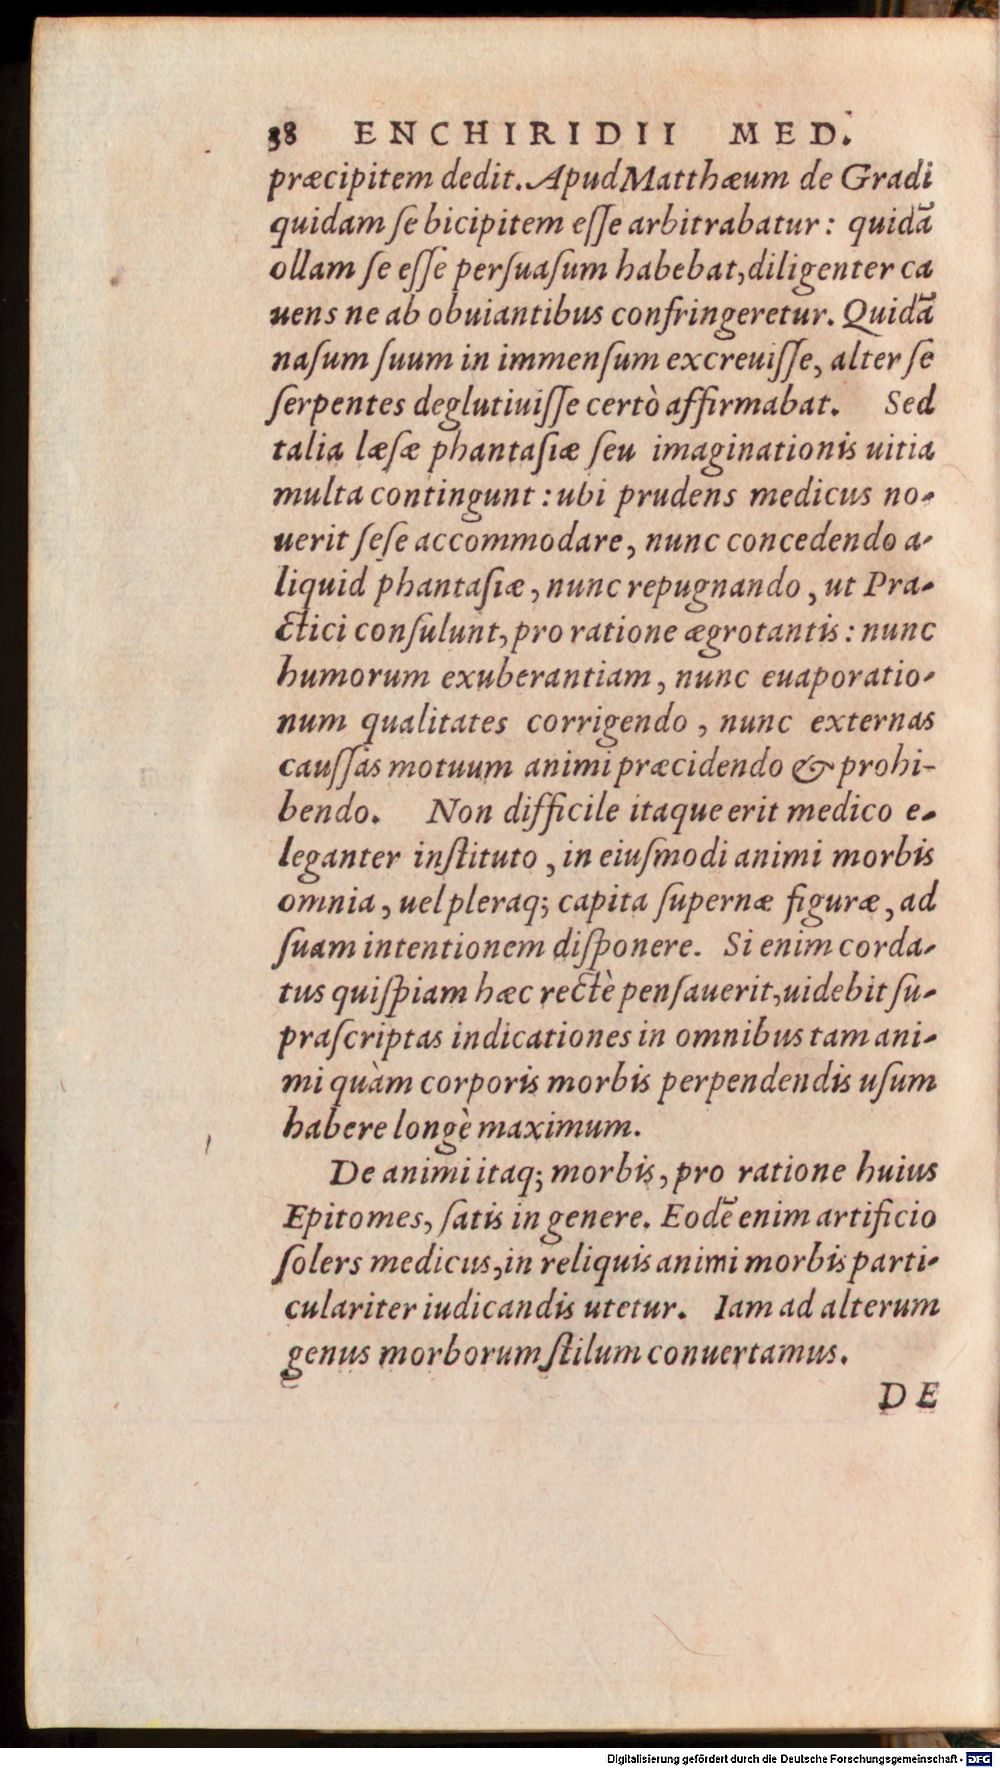 38 ENCHIRIDII MED.
præcipitem dedit. Apud Matthæum de Gradi
quidam ſe bicipitem eſſe arbitrabatur: quidã
ollam ſe eſſe perſuaſum habebat, diligenter ca
uens ne ab obuiantibus confringeretur. Quidã
naſum ſuum in immenſum excreuiſſe, alter ſe
ſerpentes deglutiuiſſe certò affirmabat. Sed
talia læſæ phantaſiæ ſeu imaginationis uitia
multa contingunt: ubi prudens medicus no-
uerit ſeſe accommodare, nunc concedendo a-
liquid phantaſiæ, nunc repugnando, ut Pra-
ctici conſulunt, pro ratione ægrotantis: nunc
humorum exuberantiam, nunc euaporatio-
num qualitates corrigendo, nunc externas
cauſſas motuum animi præcidendo & prohi-
bendo. Non difficile itaque erit medico e-
leganter inſtituto, in eiuſmodi animi morbis
omnia, uel pleraq; capita ſupernæ figuræ, ad
ſuam intentionem diſponere. Si enim corda-
tus quiſpiam hæc rectè penſauerit, uidebit ſu-
praſcriptas indicationes in omnibus tam ani-
mi quàm corporis morbis perpendendis uſum
habere longè maximum.
De animi itaq; morbis, pro ratione huius
Epitomes, ſatis in genere. Eodẽ enim artificio
ſolers medicus, in reliquis animi morbis parti-
culariter iudicandis utetur. Iam ad alterum
genus morborum ſtilum conuertamus.
DE
Digitalisierung gefördert durch die Deutsche Forschungsgemeinschaft - DFG